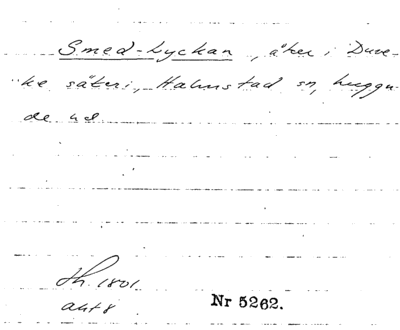 Smed-Lyckan, åker i Duve-
ke säteri, Halmstad sn, Luggu-
de hd
Th. 1801.
akt 8
Nr 5262.